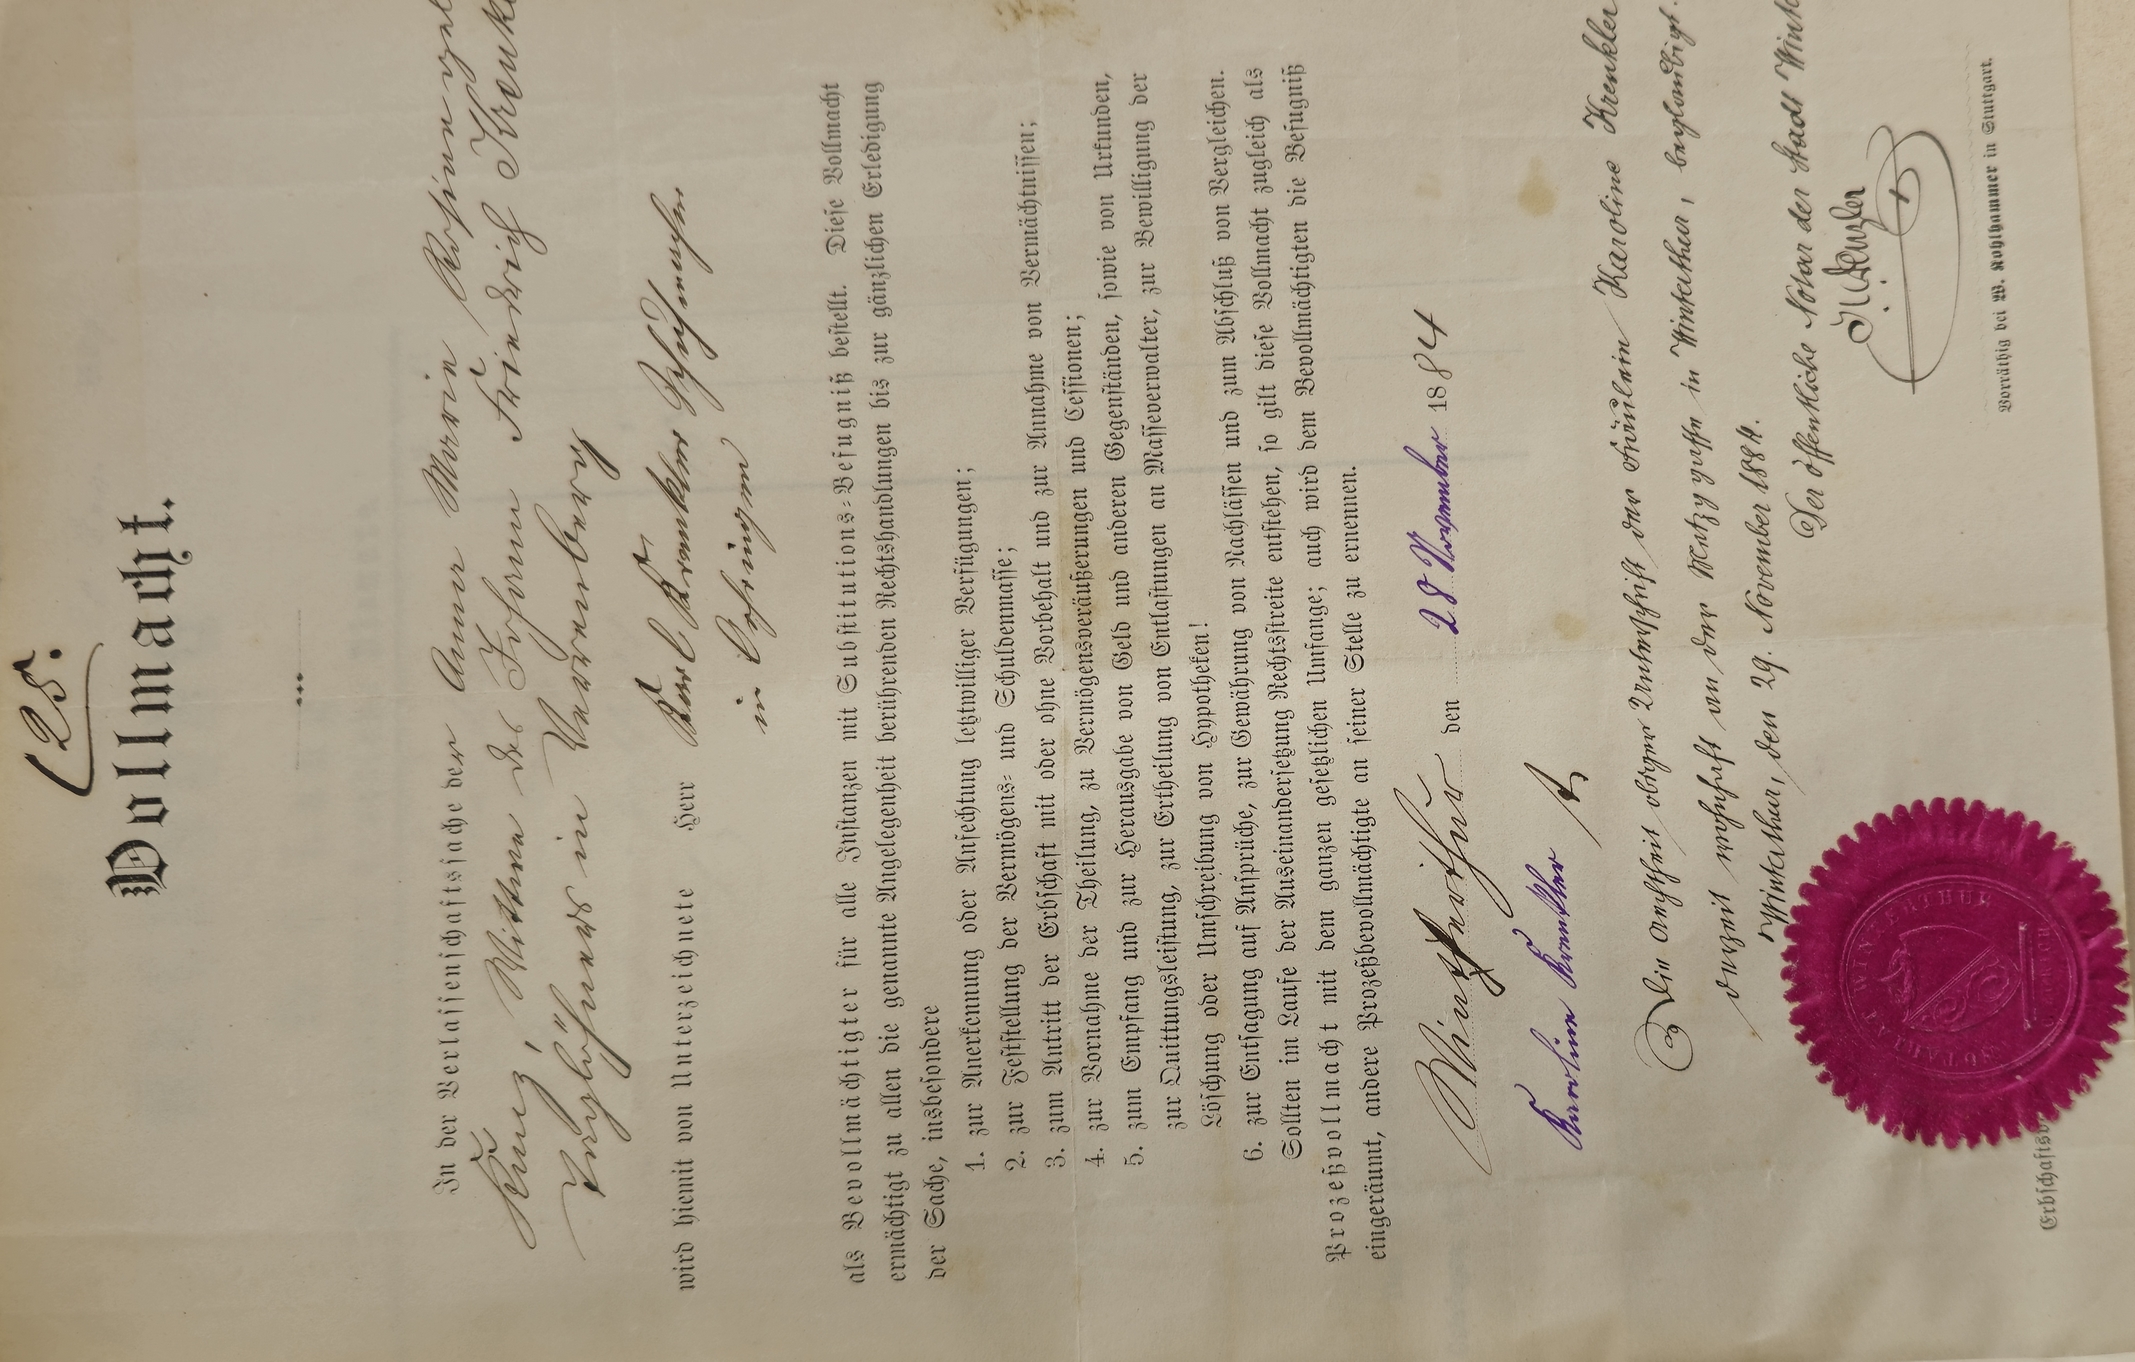 (28.
Vollmacht.
In der Verlassenschaftssache der Anna Maria Rosina geb.
Kurz, Wittwe des Johann Friedrich Krenkler
Taglöhners in
wird hiemit von Unterzeichnete Herr Karl Krenkler Schuhmacher
in Ofingen
als Bevollmächtigter für alle Instanzen mit Substitutions-Befugniß bestellt. Diese Vollmacht
ermächtigt zu allen die genannte Angelegenheit berührenden Rechtshandlungen bis zur gänzlichen Erledigung
der Sache, insbesondere
1. zur Anerkennung oder Anfechtung letztwilliger Verfügungen;
2. zur Feststellung der Vermögens- und Schuldenmasse;
3. zum Antritt der Erbschaft mit oder ohne Vorbehalt und zur Annahme von Vermächtnissen;
4. zur Vornahme der Theilung, zu Vermögensveräußerungen und Cessionen;
5. zum Empfang und zur Herausgabe von Geld und anderen Gegenständen, sowie von Urkunden,
zur Quittungsleistung, zur Ertheilung von Entlastungen an Masseverwalter, zur Bewilligung der
Löschung oder Umschreibung von Hypotheken!
6. zur Entsagung auf Ansprüche, zur Gewährung von Nachlässen und zum Abschluß von Vergleichen.
Sollten im Laufe der Auseinandersetzung Rechtsstreite entstehen, so gilt diese Vollmacht zugleich als
Prozeßvollmacht mit dem ganzen gesetzlichen Umfange; auch wird dem Bevollmächtigten die Befugniß
eingeräumt, andere Prozeßbevollmächtigte an seiner Stelle zu ernennen.
Winterthur den 28 November 1884
Karoline Krenkler
Die Aechtheit obiger Unterschrift der Fräulein Karoline Krenkler
derzeit wohnhaft an der Metzggasse in Winterthur, beglaubigt.
Winterthur, den 29. November 1884.
Der öffentliche Notar der Stadt Winter
NOTARIAT WINTERTHUR
Vorräthig bei W. Kohlhammer in Stuttgart.
Erbschafts